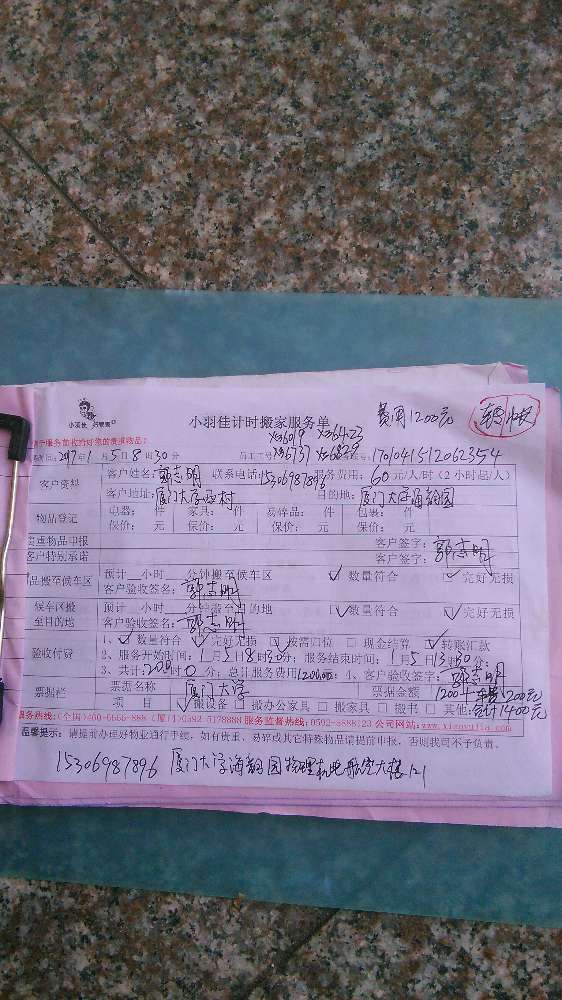 小羽佳 好管家
小羽佳计时搬家服务单 费用1200元 转账
xy6019 xy6423
2017年1月5日8时30分 xy6737 xy6829 17010415120623 54
客户资料 客户姓名：郭志明 联系电话：15306987896 服务费用：60元/人/时（2小时起/人）
客户地址：厦门大学西村 目的地：厦门大学海韵园
物品登记 电器： 件 家具： 件 易碎品： 件 包裹： 件
保价： 元 保价： 元 保价： 元 保价： 元
贵重物品申报 客户签字：郭志明
客户特别承诺 客户签字：
品搬至候车区 预计 小时 分钟搬至候车区 ☑数量符合 ☑完好无损
客户验收签名：郭志明
候车区搬至目的地 预计 小时 分钟搬至目的地 ☑数量符合 ☑完好无损
客户验收签名：郭志明
验收付费 1、☑数量符合 ☑完好无损 ☑按需归位 □现金结算 ☑转账汇款
2、服务开始时间：1月5日8时30分；服务结束时间：1月5日13时30分；
3、共计：20时0分；总计服务费用1200元；4、客户验收签字：郭志明
票据栏 票据名称 厦门大学 票据金额 1200+车费200元
项 目 ☑搬设备 □搬办公家具 □搬家具 □搬书 □其他：合计1400元
服务热线：(全国)400-6666-888 (厦门)0592-5178888 服务监督热线：0592-5888123 公司网站：www.xiaoyujia.com
温馨提示：请提前办理好物业通行手续，如有贵重、易碎或其它特殊物品请提前申报，否则我司不予负责。
15306987896 厦门大学海韵园物理机电航空大楼121